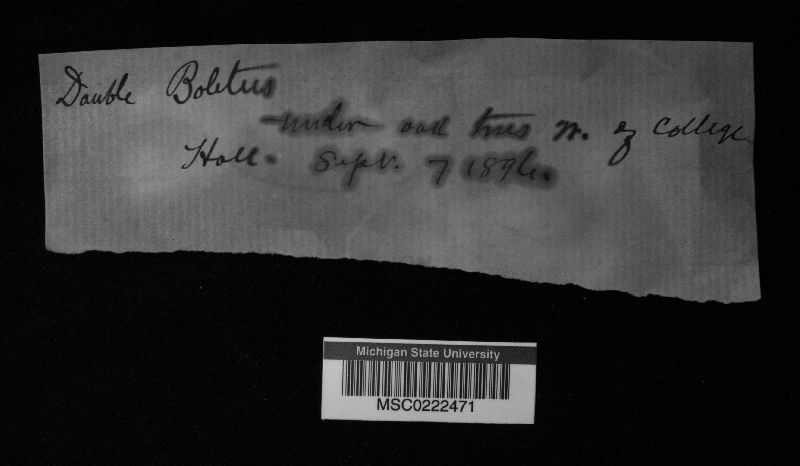 Double Boletus
under oak trees N. of College
Hall. Sept. 7 1896.
Michigan State University
MSC0222471